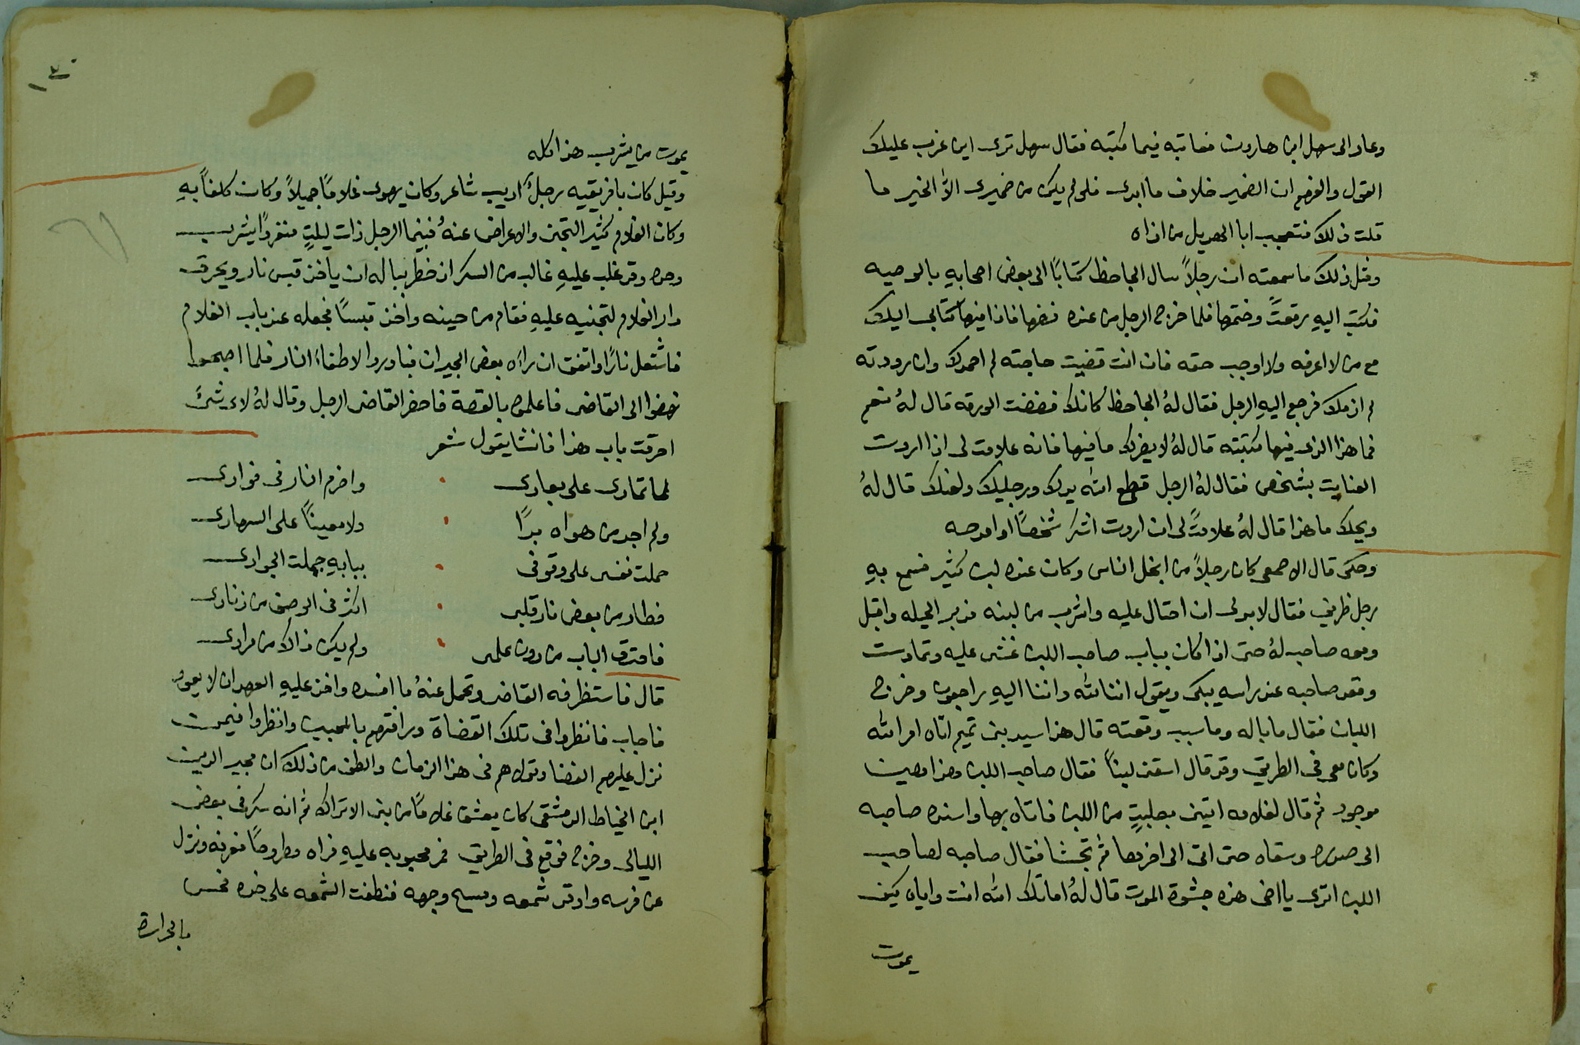 وعاد الى سهل ابن هارون فعاتبه فيما كتبه فقال سهل ترى اين عزب عليك
القول والفهم ان الضمير خلاف ما ابدى فلو لم يكن من ضميرى الا الخير ما
قلت ذلك فتعجب ابا الهديل من اذاه
ومثل ذلك ما سمعته ان رجلاً سال الجاحظ كتابًا الى بعض اصحابهِ بالوصيه
فكتب اليهِ رقعتً وختمها فلما خرج الرجل من عنده فضها فاذا فيها كتابى اليك
مع من لا اعرفه ولا اوجب حقه فان انت قضيت حاجته لم احمدك وان رددته
لم اذمك فرجع اليهِ الرجل فقال لهُ الجاحظ كانك فضضت الورقه قال لهُ نعم
فما هذا الذى فيها كتبته قال لهُ لا يضرك ما فيها فانه علامت لى اذا اردت
العنايت بشخص فقال لهُ الرجل قطع الله يدك ورجليك ولعنك قال لهُ
ويحك ما هذا قال لهُ علامتً لى ان اردت اشكر شخصًا او امدحه
وحكى قال الاصمعى كان رجلاً من ابخل الناس وكان عنده لبن كثير فسمع بهِ
رجل ظريف فقال لا بد لى ان احتال عليه واشرب من لبنه فدبر الحيله واقبل
ومعه صاحب لهُ حتى اذا كان بباب صاحب اللبن غشى عليه وتماوت
وقعد صاحبه عند راسه يبكى ويقول اننا لله واننا اليهِ راجعون وخرج
اللبان فقال ما باله وما سبب وقعته قال هذا سيد بنى تميم اتاه امر الله
وكان معى فى الطريق وقد قال اسقنى لبنًا فقال صاحب اللبن وهذا وهينا
موجود ثم قال لغلامه ايتنى بعلبتٍ من اللبن فاتاه بها واسنده صاحبه
الى صدره وسقاه حتى اتى الى اخرها ثم تجشا فقال صاحبه لصاحب
اللبن اترى يا اخى هذه جشوة الموت قال لهُ اماتك الله انت واياه كيف
يموت
يموت من يشرب هذا كله
وقيل كان بافريقيه رجلٌ اديب شاعر وكان يهوى غلامًا جميلاً وكان كلفاً بهِ
وكان الغلام كثير التجنى والاعراض عنهُ فبينما الرجل ذات ليلتٍ منفردًا يشرب
وحده وقد غلب عليهِ غالب من السكر ان خطر بباله ان ياخذ قبس نار ويحرق
دار الغلام لتجنيه عليهِ فقام من حينه واخذ قبسًا فجعله عند باب الغلام
فاشتعل نارًا واتفق ان راه بعض الجيران فبادروا لاطفاء النار فلما اصبحوا
نهضوا الى القاضى فاعلموه بالقصة فاحضر القاضى الرجل وقال لهُ لاى شئ
احرقت باب هذا فانشا يقول شعر
لما تمادى على بعادى واضرم النار فى فوادى
ولم اجد من هواه بدًا ولا معينًا على السهادى
حملت نفسى على وقوفى ببابهِ جملت الجوادى
فطار من بعض نار قلبى اكثر فى الوصف من زنادى
فاحترق الباب من دون علمى ولم يكن ذالك من مرادى
قال فاستظرفه القاضى وتحمل عنهُ ما افسده واخذ عليهِ العهد ان لا يعود
فاجاب فانظروا فى تلك القضاة ورافتهم بالمحبين وانظروا فيمن
نزل عليهم القضا وتولاهم فى هذا الزمان والطف من ذلك ان مجير الدين
ابن الخياط الدمشقى كان يعشق غلامًا من بنى الاتراك ثم انه سكر فى بعض
الليالى وخرج فوقع فى الطريق فمر محبوبه عليهِ فراه مطروحًا فعرفه ونزل
عن فرسه واوقد شمعه ومسح وجهه فنطفت الشمعه على خده فحس
بالحرارة